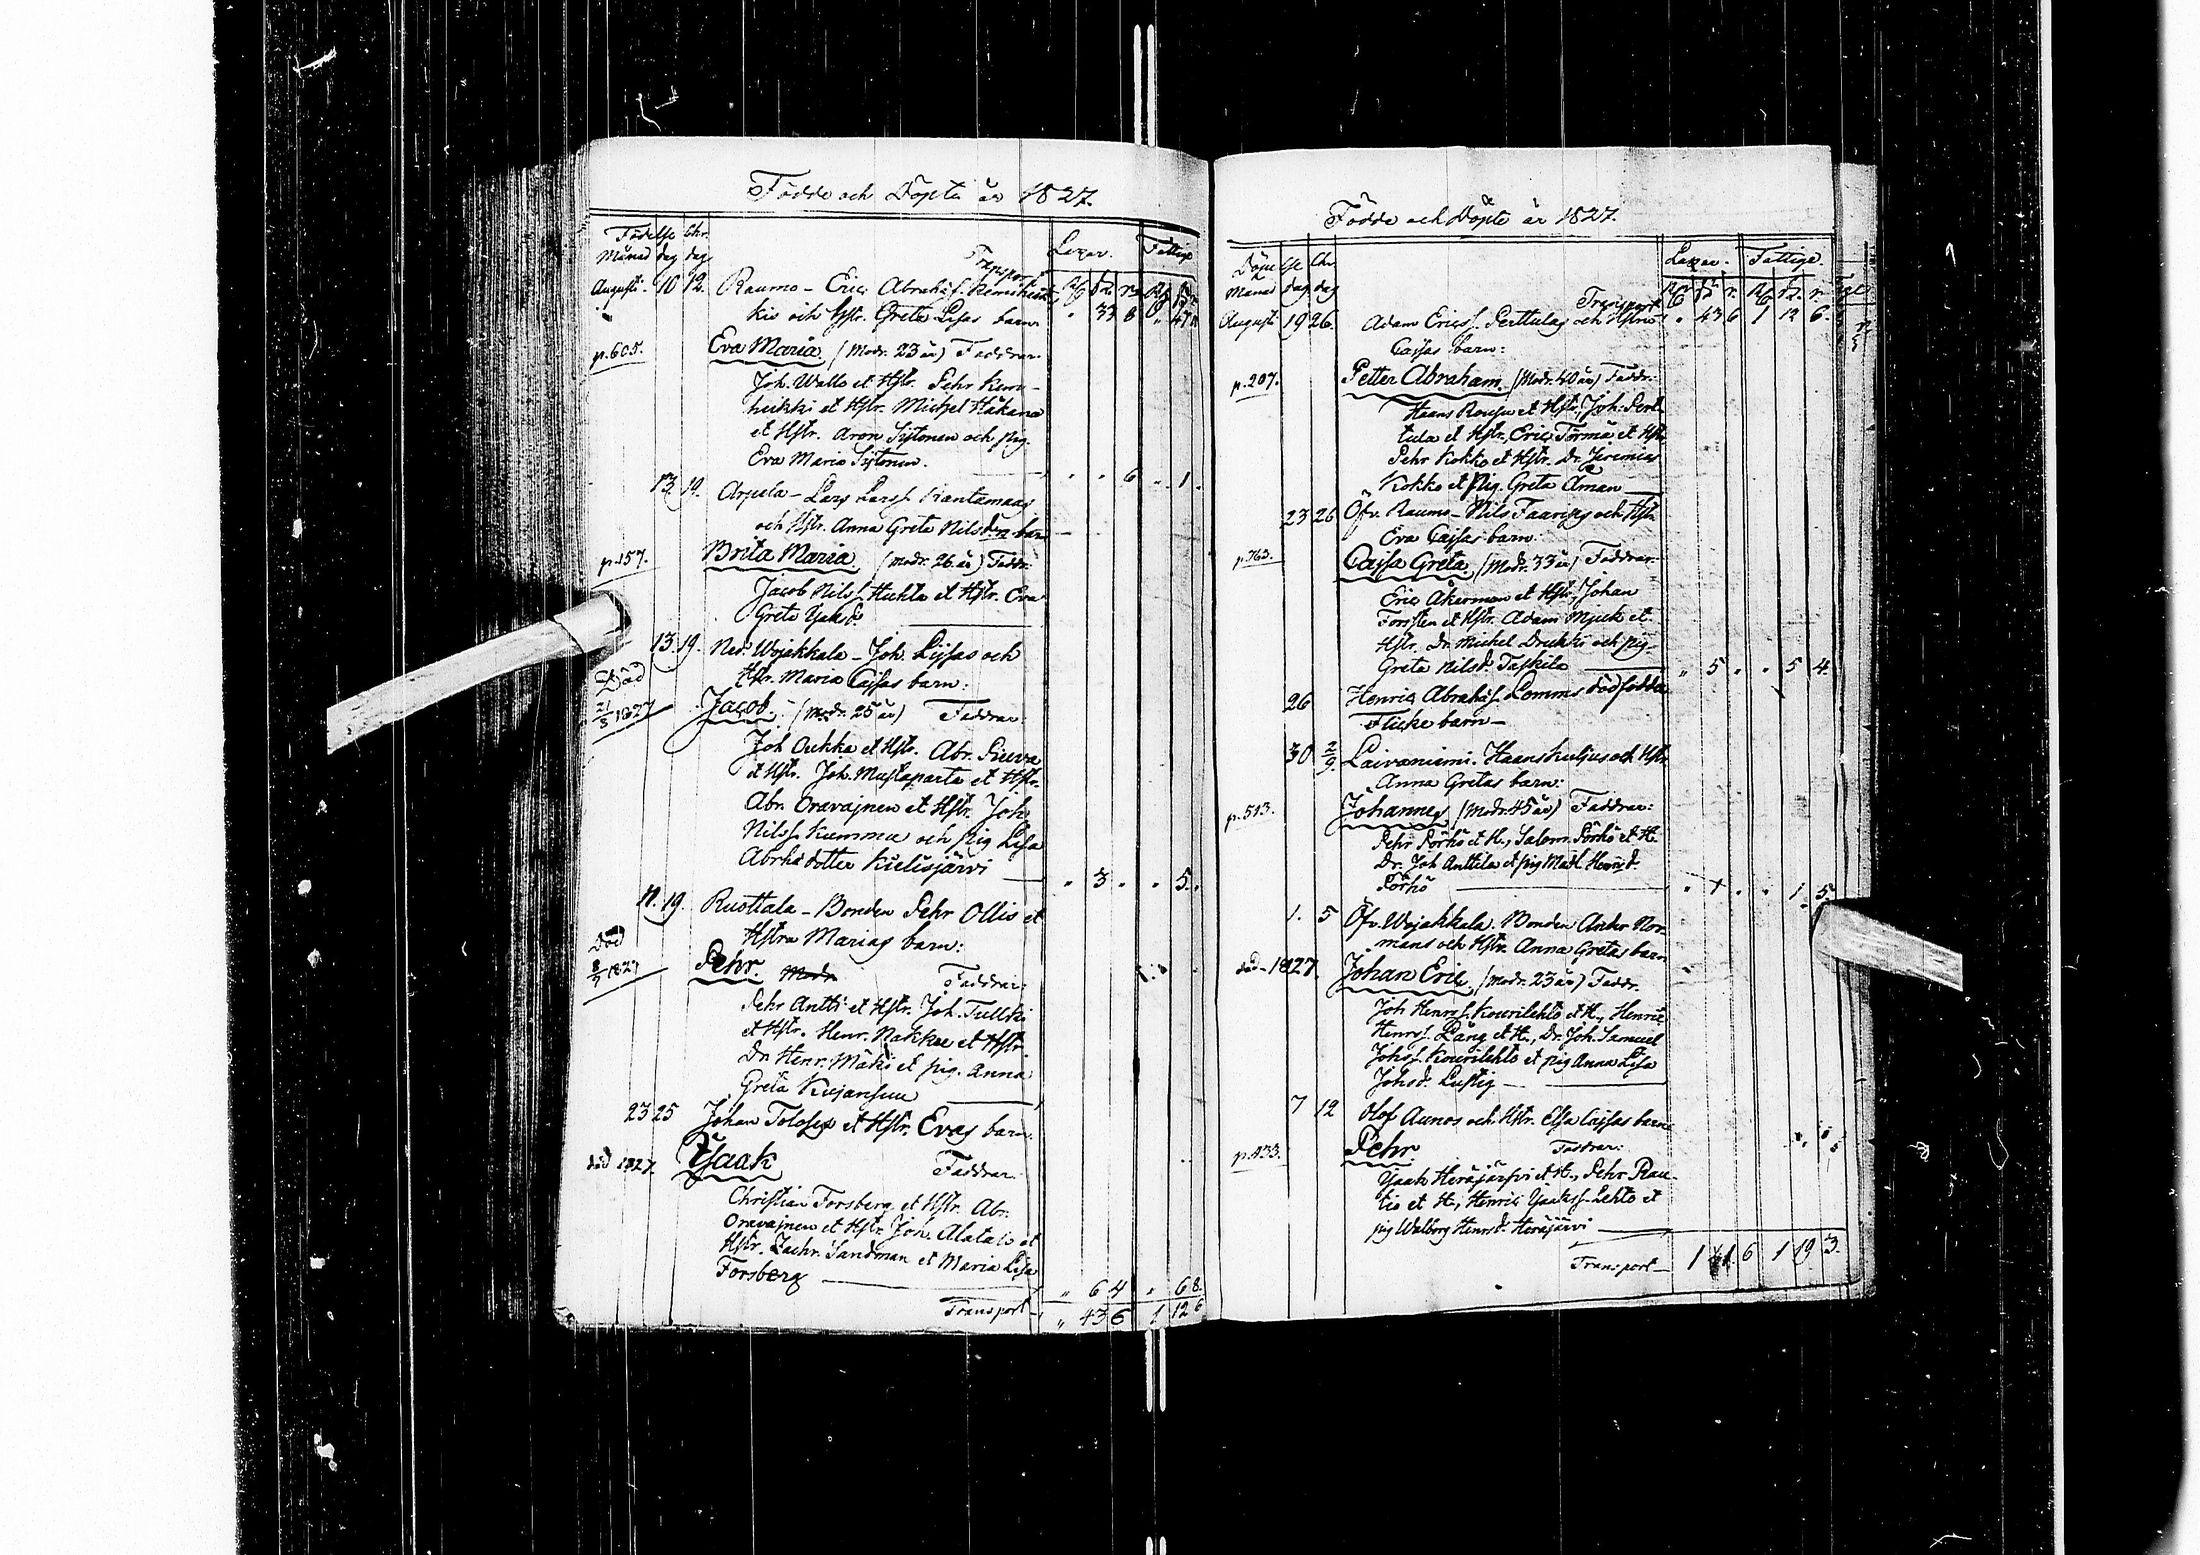 Födde och Döpte år 1827.
Födelse Chr.
Månad dag dag
Lazar. Fattige
Transport
Augusti. 10 12. Raumo – Eric Abrahs.
kis och Hstr. Greta Lisas barn " 33 8 " 47
p. 605. Eva Maria (Modr. 23 år) Faddrar.
Joh. Wallo et Hstr. Pehr Kem-
heikki et Hstr. Michel Håkana
et Hstr. Aron Sistonen och pig.
Eva Maria Sistonen. " " 6 " 1 "
13. 19. Arpela – Lars Larss. Kantomaas
och Hstr. Anna Greta Nilsdrs barn
p. 157. Brita Maria (modr. 26 år) Faddr:
Jacob Nilss. Huhta et Hstr. Eva
Greta Isaksd.
13. 19. Ned. Wojakkala – Joh. Lissas och
Hstr. Maria Cajsas barn:
Död
1827 Jacob. (modr. 25 år) Faddrar:
Joh Oukka et Hstr. Abr. Siuva
et Hstr. Joh. Mustaparta et Hstr.
Abr. Oravajnen et Hstr. Joh.
Nilss. Kumma och pig Lisa
Abrhsdotter Kielisjärvi " 3 " " 5 "
19. Ruottala – Bonden Pehr Ollis et
Hstra Marias barn:
Död
1827 Pehr. Modr. Faddrar:
Pehr Antti et Hstr. Joh. Tullki
et Hstr. Henr. Nakka et Hstr.
Dr Henr. Mäki et pig. Anna
Greta Kujansuu
23 25 Johan Tolosas et Hstr. Evas barn.
död 1827. Isaak Faddrar.
Christian Forsberg et Hstr. Abr.
Oravajnen et Hstr. Joh. Alatalo et
Hstr. Zachr. Sandman et Maria Lisa
Forsberg " 6 4 " 6 8
Transport " 43 6 1 12 6
Födde och Döpte år 1827.
Månad dag dag
Lazar. Fattige.
Transport
Augusti 19 26. Adam Ericss. Perttulas och Hstrs " 43 6 1 12 6
Cajsas barn:
p. 207. Petter Abraham. (Modr. 40 år) Faddr:
Haans Rousu et Hstr, Joh: Pert
tula et Hstr, Eric Törmä et Hstr
Pehr Kokko et Hstr. Dr. Jeremias
Kokko et Pig. Greta Åman
23 26 Öfv. Raumo – Nils Faarigs och Hstr.
Eva Cajsas barn:
p. 763. Cajsa Greta. (Modr. 33 år) Faddrar.
Eric Åkerman et Hstr, Johan
Forssten et Hstr. Adam Mjuk et
Hstr. Dr. Michel Drukki och pig-
Greta Nilsd. Taskila " 5 " " 5 4
26 Henric Abrahss. Lomms dödfödda
Flicke barn –
30 2/9. Laivaniemi. Haans Kuljus och Hstr
Anna Gretas barn:
p. 513. Johannes (Modr. 45 år) Faddrar:
Pehr Pörhö et H., Salom. Pörhö et H.
Dr. Joh Anttila et pig Madl. Henrsd.
Pörhö " 1 " " 1. 5.
1. 5 Öfv. Wojakkala. Bonden Anders Nor-
mans och Hstr. Anna Gretas barn
död – 1827. Johan Eric (modr. 23 år) Faddr.
Joh Henrss. Kourilehto et H., Henric
Henrss. Läng et H., Dr. Joh. Samuel
Johss. Kourilehto et pig Anna Lisa
Johsd. Lustig
7 12 Olof Aunos och Hstr. Elsa Cajsas barn
p. 433. Pehr. Faddrar:
Isaak Heräjärfvi et H., Pehr Rau-
tio et H., Henric Isakss. Lehto et
pig Walborg Henrsd. Heräjärvi
Transport – 1 1 6 1 19 3.